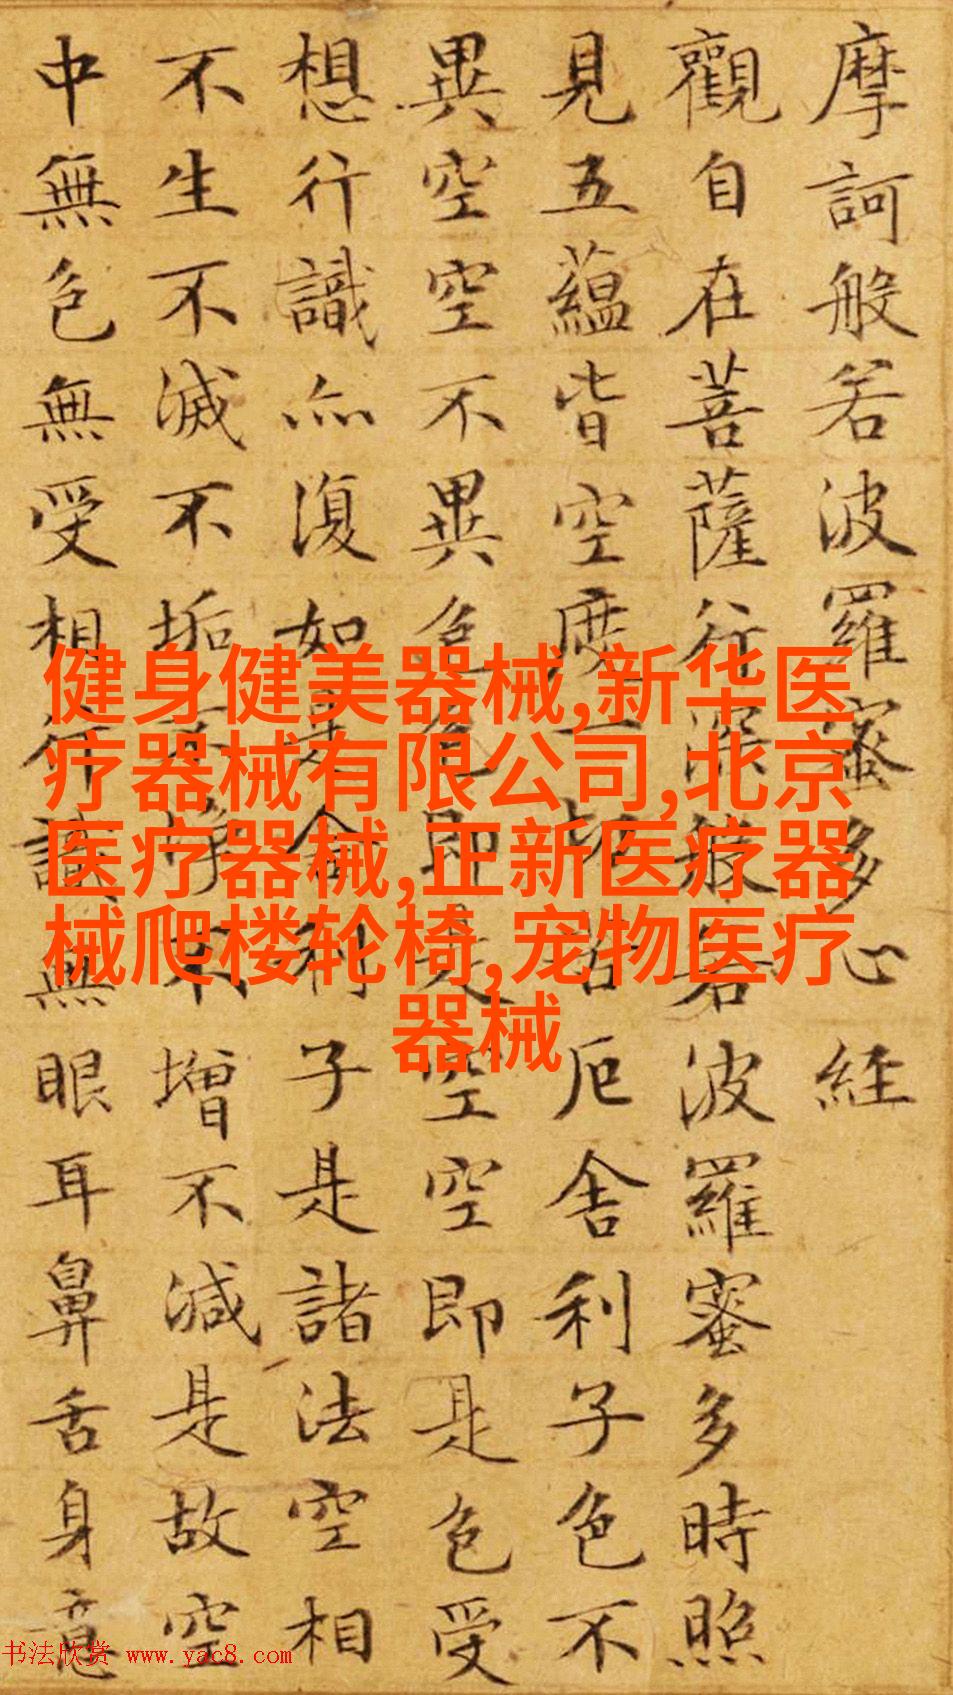 摩訶般若波羅蜜多心經
觀自在菩薩行深般若波羅蜜多時照
見五蘊皆空度一切苦厄舍利子色不
異空空不異色色即是空空即是色受
想行識亦復如是舍利子是諸法空相
不生不滅不垢不淨不增不減是故空
中無色無受想行識無眼耳鼻舌身意
健身健美器械,新华医
疗器械有限公司,北京
医疗器械,正新医疗器
械爬楼轮椅,宠物医疗
器械
书法欣赏 www.yac8.com